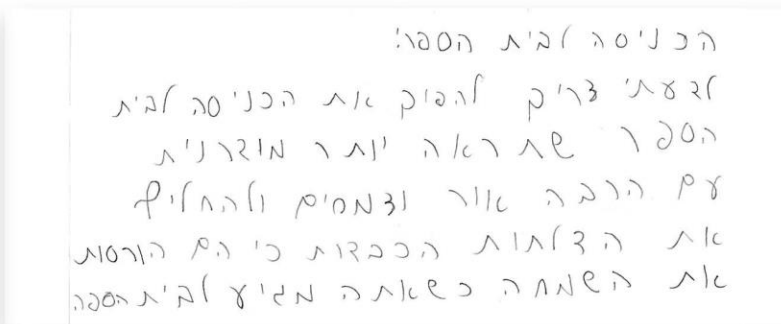 הכניסה לבית הספר:
לדעתי צריך להפוך את הכניסה לבית
הספר שתראה יותר מודרנית
עם הרבה אור וצמחים ולהחליף
את הדלתות הכבדות כי הם הורסות
את השמחה כשאתה מגיע לבית הספר